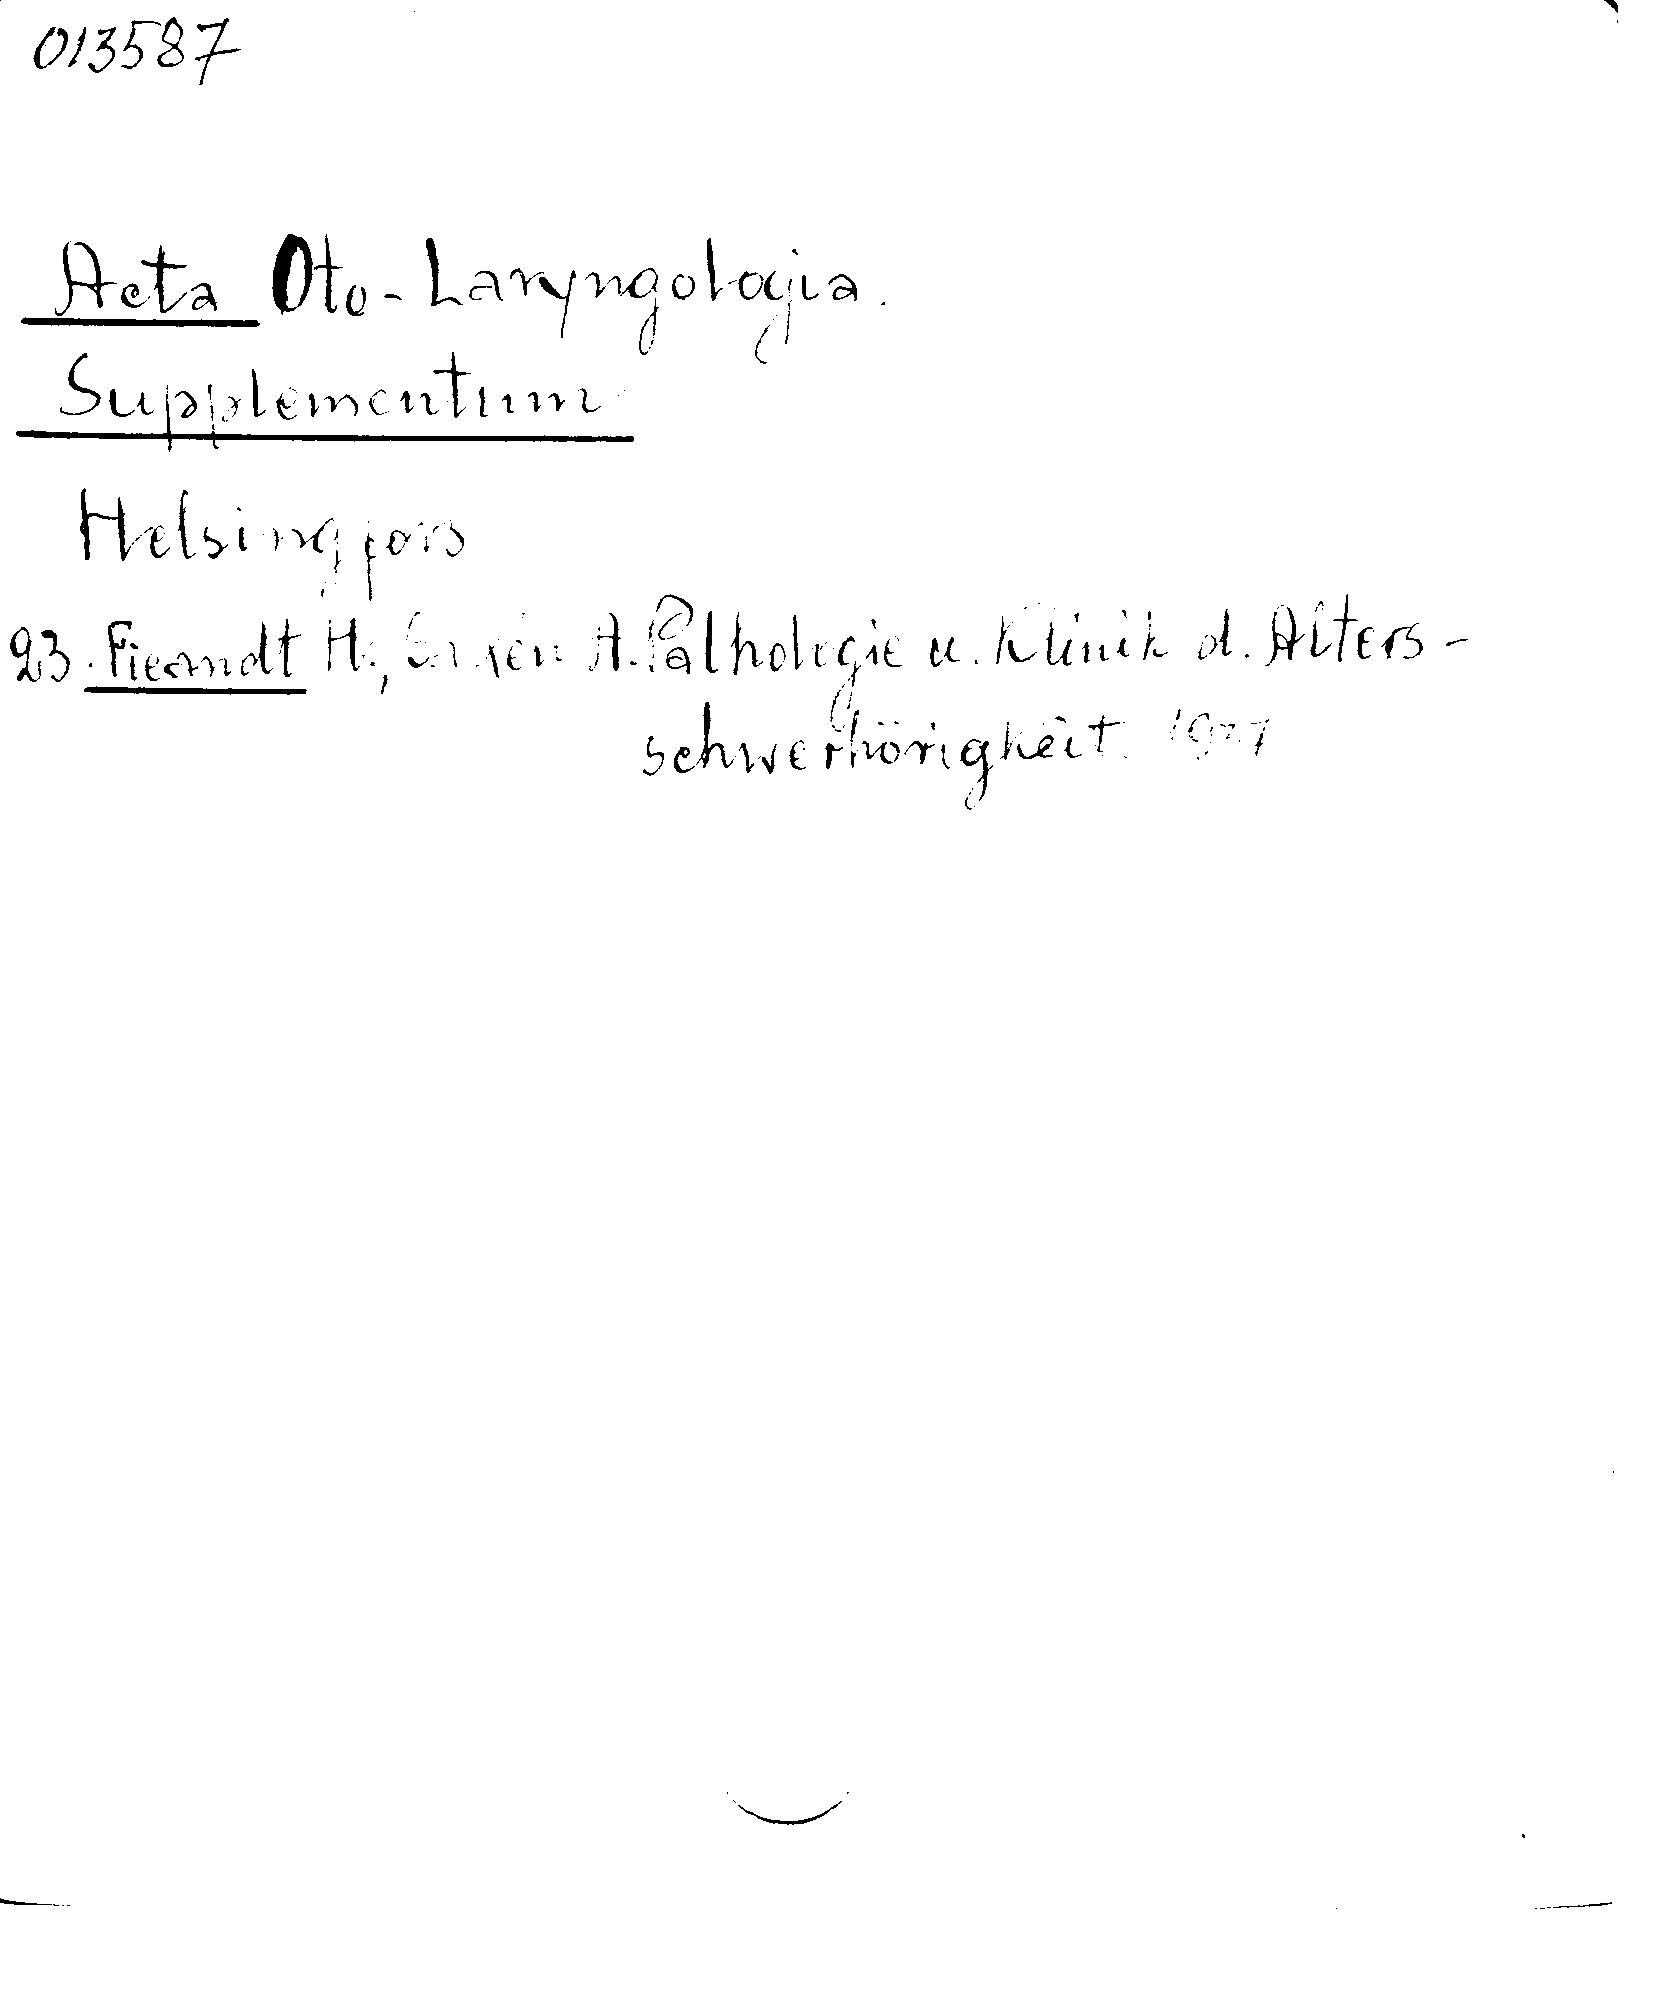 013587
Acta Oto-Laryngologia.
Supplementum
Helsingfors
23. Fieandt H., A. Pathologie u. Klinik d. Alters-
schwerhörigkeit.